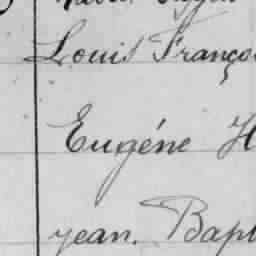 Louis Franço
Eugéne H
jean. Bapt